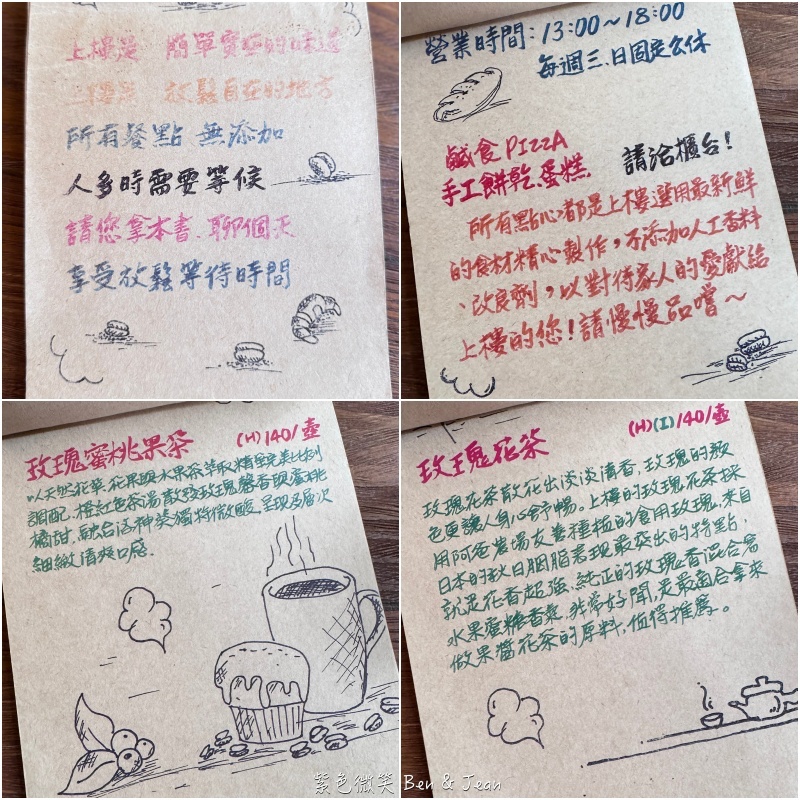 上樓是 簡單實在的味道
二樓是 放鬆自在的地方
所有餐點 無添加
人多時需要等候
請您拿本書、聊個天
享受放鬆等待時間
營業時間:13:00~18:00
每週三、日固定公休
鹹食PIZZA
手工餅乾、蛋糕 請洽櫃台!
所有點心都是上樓選用最新鮮
的食材精心製作,不添加人工香料
、改良劑,以對待家人的愛獻給
上樓的您!請慢慢品嚐~
玫瑰蜜桃果茶 (H)140/壺
以天然花草、花果跟水果茶萃取精華完美比例
調配,橙紅色茶湯散發玫瑰馨香跟蜜桃
橘甜,融合洛神葵獨特微酸,呈現多層次
細緻清爽口感.
玫瑰花茶 (H)(I)140/壺
玫瑰花茶散花出淡淡清香,玫瑰的顏
色更讓人身心舒暢。上樓的玫瑰花茶採
用阿爸農場友善種植的食用玫瑰,來自
日本的秋日胭脂表現最突出的特點,
就是花香超強、純正的玫瑰香混合著
水果蜜糖香氣,非常好聞,是最適合拿來
做果醬花茶的原料,值得推薦。
紫色微笑 Ben & Jean